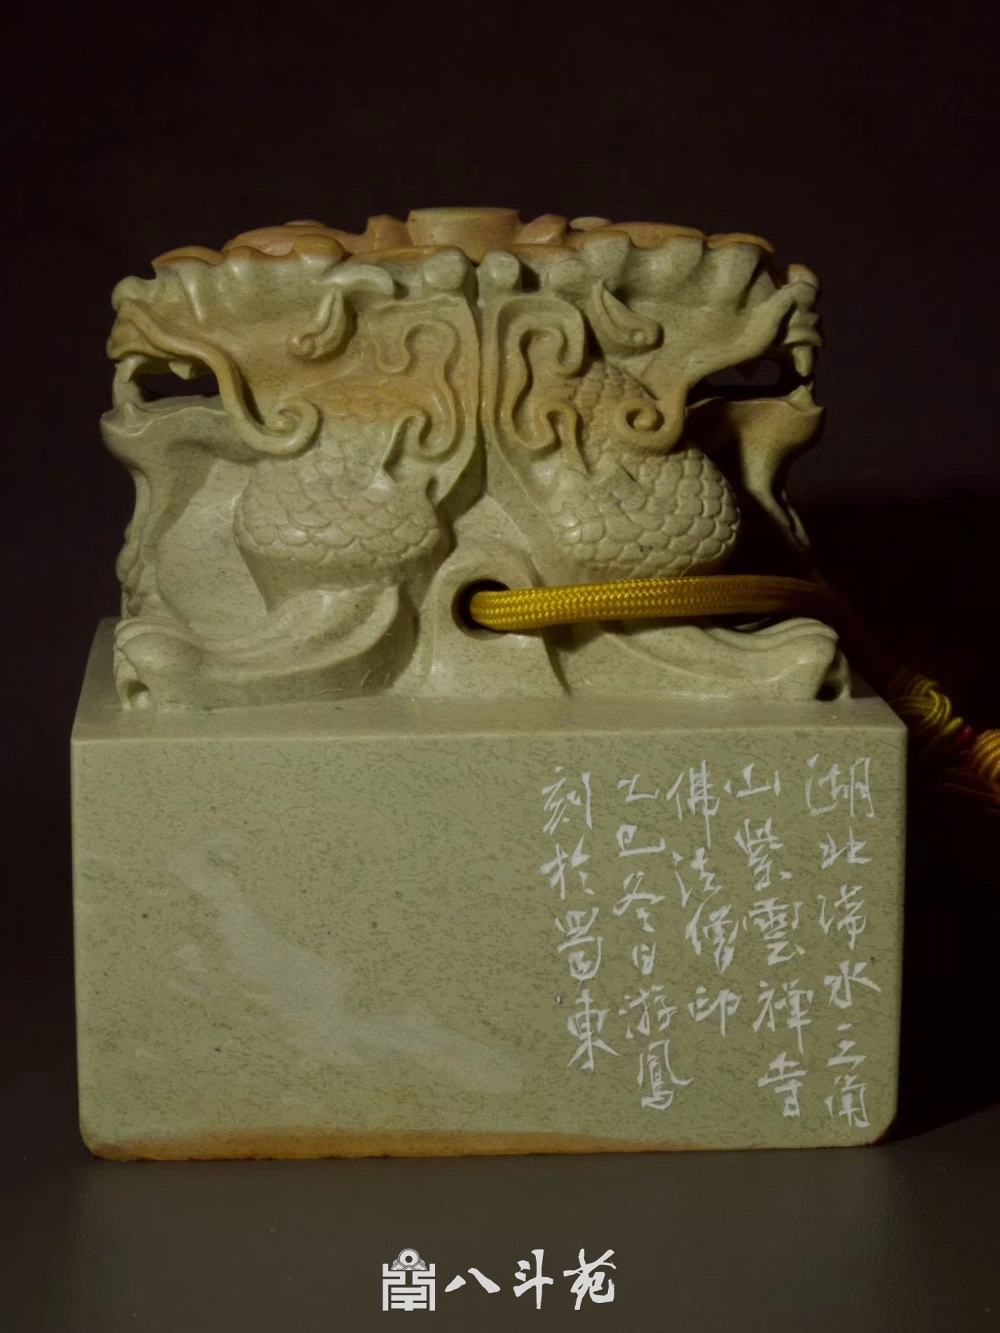 湖北浠水三角
山紫雲禪寺
佛法僧印
乙巳冬日游鳳
刻於蜀東
八斗苑